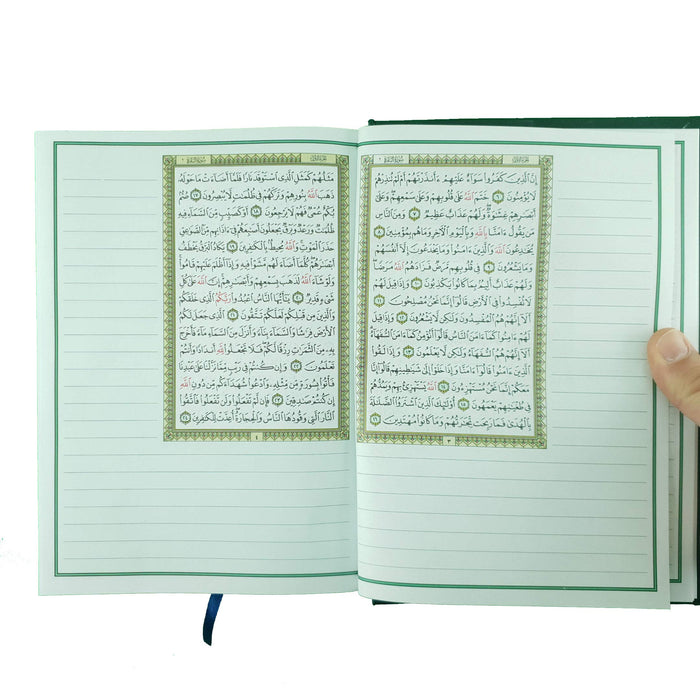 الجُزْءُ الأَوَّلُ سُورَةُ البَقَرَةِ ٢
إِنَّ ٱلَّذِينَ كَفَرُوا۟ سَوَآءٌ عَلَيْهِمْ ءَأَنذَرْتَهُمْ أَمْ لَمْ تُنذِرْهُمْ
لَا يُؤْمِنُونَ ٦ خَتَمَ ٱللَّهُ عَلَىٰ قُلُوبِهِمْ وَعَلَىٰ سَمْعِهِمْ وَعَلَىٰٓ
أَبْصَٰرِهِمْ غِشَٰوَةٌ وَلَهُمْ عَذَابٌ عَظِيمٌ ٧ وَمِنَ ٱلنَّاسِ
مَن يَقُولُ ءَامَنَّا بِٱللَّهِ وَبِٱلْيَوْمِ ٱلْءَاخِرِ وَمَا هُم بِمُؤْمِنِينَ ٨
يُخَٰدِعُونَ ٱللَّهَ وَٱلَّذِينَ ءَامَنُوا۟ وَمَا يَخْدَعُونَ إِلَّآ أَنفُسَهُمْ
وَمَا يَشْعُرُونَ ٩ فِى قُلُوبِهِم مَّرَضٌ فَزَادَهُمُ ٱللَّهُ مَرَضًا
وَلَهُمْ عَذَابٌ أَلِيمٌۢ بِمَا كَانُوا۟ يَكْذِبُونَ ١٠ وَإِذَا قِيلَ لَهُمْ
لَا تُفْسِدُوا۟ فِى ٱلْأَرْضِ قَالُوٓا۟ إِنَّمَا نَحْنُ مُصْلِحُونَ ١١
أَلَآ إِنَّهُمْ هُمُ ٱلْمُفْسِدُونَ وَلَٰكِن لَّا يَشْعُرُونَ ١٢ وَإِذَا قِيلَ
لَهُمْ ءَامِنُوا۟ كَمَآ ءَامَنَ ٱلنَّاسُ قَالُوٓا۟ أَنُؤْمِنُ كَمَآ ءَامَنَ ٱلسُّفَهَآءُ
أَلَآ إِنَّهُمْ هُمُ ٱلسُّفَهَآءُ وَلَٰكِن لَّا يَعْلَمُونَ ١٣ وَإِذَا لَقُوا۟
ٱلَّذِينَ ءَامَنُوا۟ قَالُوٓا۟ ءَامَنَّا وَإِذَا خَلَوْا۟ إِلَىٰ شَيَٰطِينِهِمْ قَالُوٓا۟ إِنَّا
مَعَكُمْ إِنَّمَا نَحْنُ مُسْتَهْزِءُونَ ١٤ ٱللَّهُ يَسْتَهْزِئُ بِهِمْ وَيَمُدُّهُمْ
فِى طُغْيَٰنِهِمْ يَعْمَهُونَ ١٥ أُو۟لَٰٓئِكَ ٱلَّذِينَ ٱشْتَرَوُا۟ ٱلضَّلَٰلَةَ
بِٱلْهُدَىٰ فَمَا رَبِحَت تِّجَٰرَتُهُمْ وَمَا كَانُوا۟ مُهْتَدِينَ ١٦
٣
الجُزْءُ الأَوَّلُ سُورَةُ البَقَرَةِ ٢
مَثَلُهُمْ كَمَثَلِ ٱلَّذِى ٱسْتَوْقَدَ نَارًا فَلَمَّآ أَضَآءَتْ مَا حَوْلَهُۥ
ذَهَبَ ٱللَّهُ بِنُورِهِمْ وَتَرَكَهُمْ فِى ظُلُمَٰتٍ لَّا يُبْصِرُونَ ١٧ صُمٌّۢ
بُكْمٌ عُمْىٌ فَهُمْ لَا يَرْجِعُونَ ١٨ أَوْ كَصَيِّبٍ مِّنَ ٱلسَّمَآءِ فِيهِ
ظُلُمَٰتٌ وَرَعْدٌ وَبَرْقٌ يَجْعَلُونَ أَصَٰبِعَهُمْ فِىٓ ءَاذَانِهِم مِّنَ ٱلصَّوَٰعِقِ
حَذَرَ ٱلْمَوْتِ وَٱللَّهُ مُحِيطٌۢ بِٱلْكَٰفِرِينَ ١٩ يَكَادُ ٱلْبَرْقُ يَخْطَفُ
أَبْصَٰرَهُمْ كُلَّمَآ أَضَآءَ لَهُم مَّشَوْا۟ فِيهِ وَإِذَآ أَظْلَمَ عَلَيْهِمْ قَامُوا۟
وَلَوْ شَآءَ ٱللَّهُ لَذَهَبَ بِسَمْعِهِمْ وَأَبْصَٰرِهِمْ إِنَّ ٱللَّهَ عَلَىٰ كُلِّ
شَىْءٍ قَدِيرٌ ٢٠ يَٰٓأَيُّهَا ٱلنَّاسُ ٱعْبُدُوا۟ رَبَّكُمُ ٱلَّذِى خَلَقَكُمْ
وَٱلَّذِينَ مِن قَبْلِكُمْ لَعَلَّكُمْ تَتَّقُونَ ٢١ ٱلَّذِى جَعَلَ لَكُمُ
ٱلْأَرْضَ فِرَٰشًا وَٱلسَّمَآءَ بِنَآءً وَأَنزَلَ مِنَ ٱلسَّمَآءِ مَآءً فَأَخْرَجَ
بِهِۦ مِنَ ٱلثَّمَرَٰتِ رِزْقًا لَّكُمْ فَلَا تَجْعَلُوا۟ لِلَّهِ أَندَادًا وَأَنتُمْ
تَعْلَمُونَ ٢٢ وَإِن كُنتُمْ فِى رَيْبٍ مِّمَّا نَزَّلْنَا عَلَىٰ عَبْدِنَا
فَأْتُوا۟ بِسُورَةٍ مِّن مِّثْلِهِۦ وَٱدْعُوا۟ شُهَدَآءَكُم مِّن دُونِ ٱللَّهِ
إِن كُنتُمْ صَٰدِقِينَ ٢٣ فَإِن لَّمْ تَفْعَلُوا۟ وَلَن تَفْعَلُوا۟ فَٱتَّقُوا۟
ٱلنَّارَ ٱلَّتِى وَقُودُهَا ٱلنَّاسُ وَٱلْحِجَارَةُ أُعِدَّتْ لِلْكَٰفِرِينَ ٢٤
٤